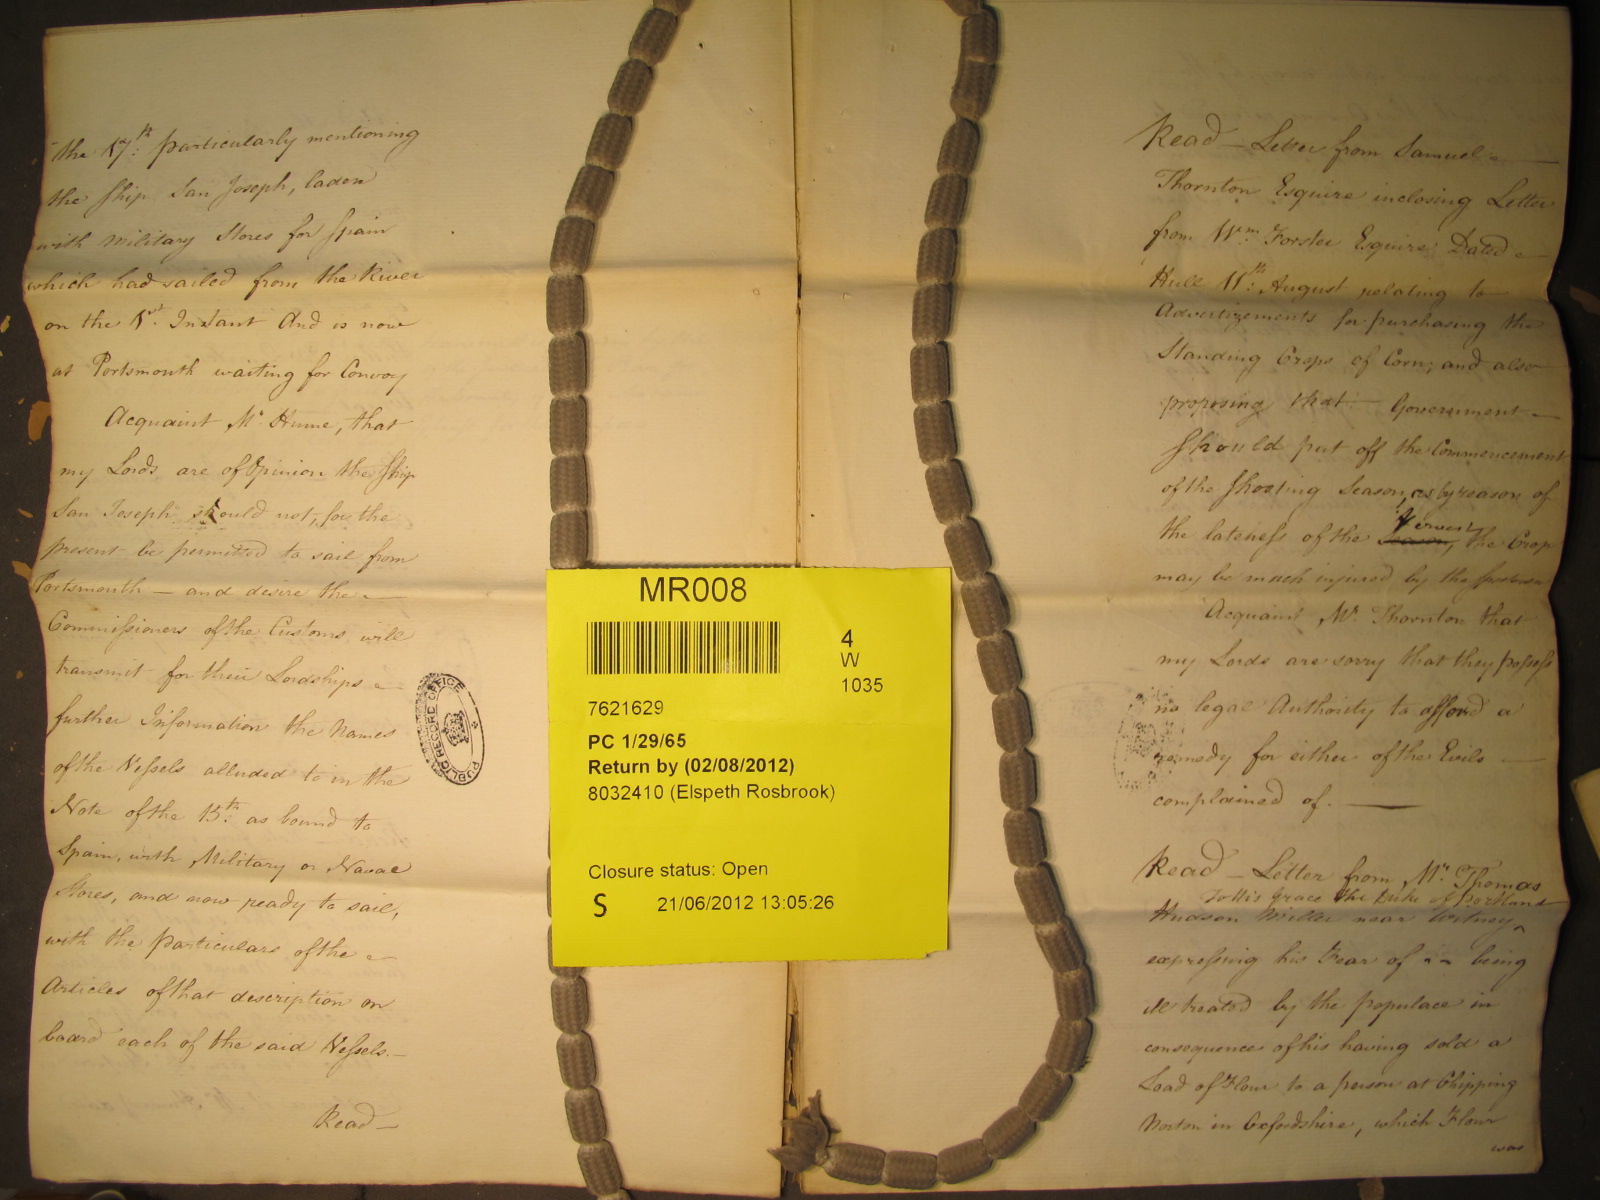 the 17th. particularly mentioning
the Ship San Joseph, laden
with Military Stores for Spain
which had sailed from the River
on the 1st. Instant And is now
at Portsmouth waiting for Convoy
Acquaint Mr Hume, that
my Lords are of Opinion the Ship
San Joseph should not, for the
present be permitted to sail from
Portsmouth — and desire the
Commissioners of the Customs will
transmit for their Lordships
further Information the Names
of the Vessels alluded to in the
Note of the 15th. as bound to
Spain, with Military or Naval
Stores, and now ready to sail,
with the particulars of the
Articles of that description on
board each of the said Vessels.—
Read —
PUBLIC RECORD OFFICE
MR008
4
W
1035
7621629
PC 1/29/65
Return by (02/08/2012)
8032410 (Elspeth Rosbrook)
Closure status: Open
S 21/06/2012 13:05:26
Read — Letter from Samuel
Thornton Esquire inclosing Letter
from Wm. Forster Esquire Dated
Hull 11th. August relating to
Advertizements for purchasing the
Standing Crops of Corn; and also
proposing that Government
should put off the Commencement
of the Shooting Season, as by reason of
the lateness of the Season, the Crop
may be much injured by the
Acquaint Mr. Thornton that
my Lords are sorry that they possess
no legal Authority to afford a
remedy for either of the Evils
complained of. —
Read — Letter from Mr. Thomas
To His Grace the Duke of Portland
Hudson Miller near Witney ^
expressing his Fear of being
ill treated by the populace in
consequence of his having sold a
Load of Flour to a person at Chipping
Norton in Oxfordshire, which Flour
was